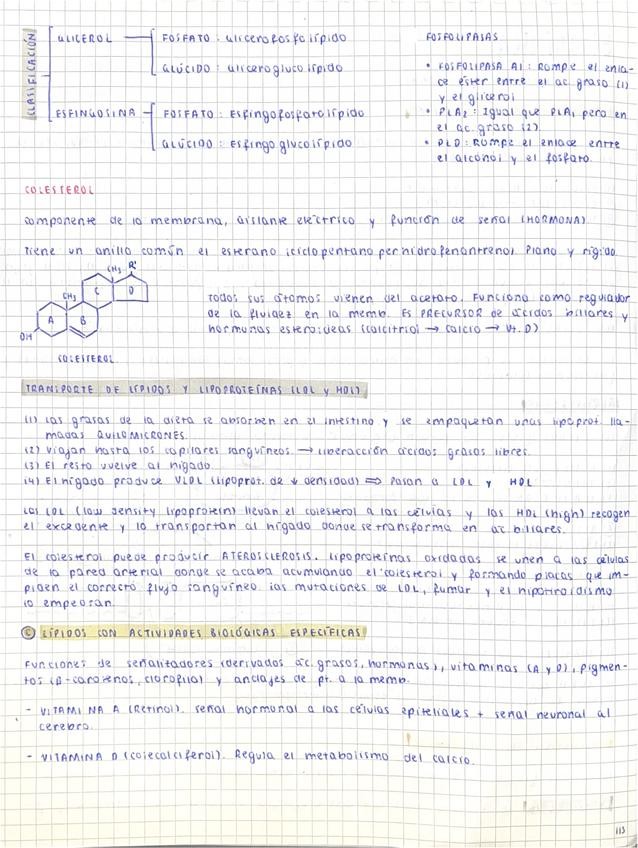 CLASIFICACIÓN
GLICEROL
FOSFATO : glicerofosfolípido
GLÚCIDO : gliceroglucolípido
ESFINGOSINA
FOSFATO : Esfingofosfatolípido
GLÚCIDO : Esfingoglucolípido
FOSFOLIPASAS
• FOSFOLIPASA A1 : Rompe el enla-
ce éster entre el ac. graso (1)
y el glicerol
• PLA2 : Igual que PLA1 pero en
el ac. graso (2)
• PLD : Rompe el enlace entre
el alcohol y el fosfato.
COLESTEROL
Componente de la membrana, aislante eléctrico y función de señal (HORMONA).
Tiene un anillo común el esterano (ciclopentanoperhidrofenantreno). Plano y rígido.
CH3 R'
CH3 C D
A B
OH
COLESTEROL
Todos sus átomos vienen del acetato. Funciona como regulador
de la fluidez en la memb. Es PRECURSOR de ácidos biliares y
hormonas esteroideas (calcitriol → calcio → Vt. D)
TRANSPORTE DE LÍPIDOS Y LIPOPROTEÍNAS (LDL y HDL)
(1) Las grasas de la dieta se absorben en el intestino y se empaquetan unas lipoprot. lla-
madas QUILOMICRONES.
(2) Viajan hasta los capilares sanguíneos → liberacción ácidos grasos libres.
(3) El resto vuelve al hígado.
(4) El hígado produce VLDL (lipoprot. de ↓ densidad) ⇒ Pasan a LDL y HDL
Las LDL (low density lipoprotein) llevan el colesterol a las células y las HDL (high) recogen
el excedente y lo transportan al hígado donde se transforma en ác biliares.
El colesterol puede producir ATEROSCLEROSIS. Lipoproteínas oxidadas se unen a las células
de la pared arterial donde se acaba acumulando el colesterol y formando placas que im-
piden el correcto flujo sanguíneo. Las mutaciones de LDL, fumar y el hipotiroidismo
lo empeoran.
© LÍPIDOS CON ACTIVIDADES BIOLÓGICAS ESPECÍFICAS
Funciones de señalitadores (derivados ác. grasos, hormonas), vitaminas (A y D), pigmen-
tos (β-carotenos, clorofila) y anclajes de pt. a la memb.
- VITAMINA A (Retinol). Señal hormonal a las células epiteliales + señal neuronal al
cerebro.
- VITAMINA D (colecalciferol). Regula el metabolismo del calcio.
113